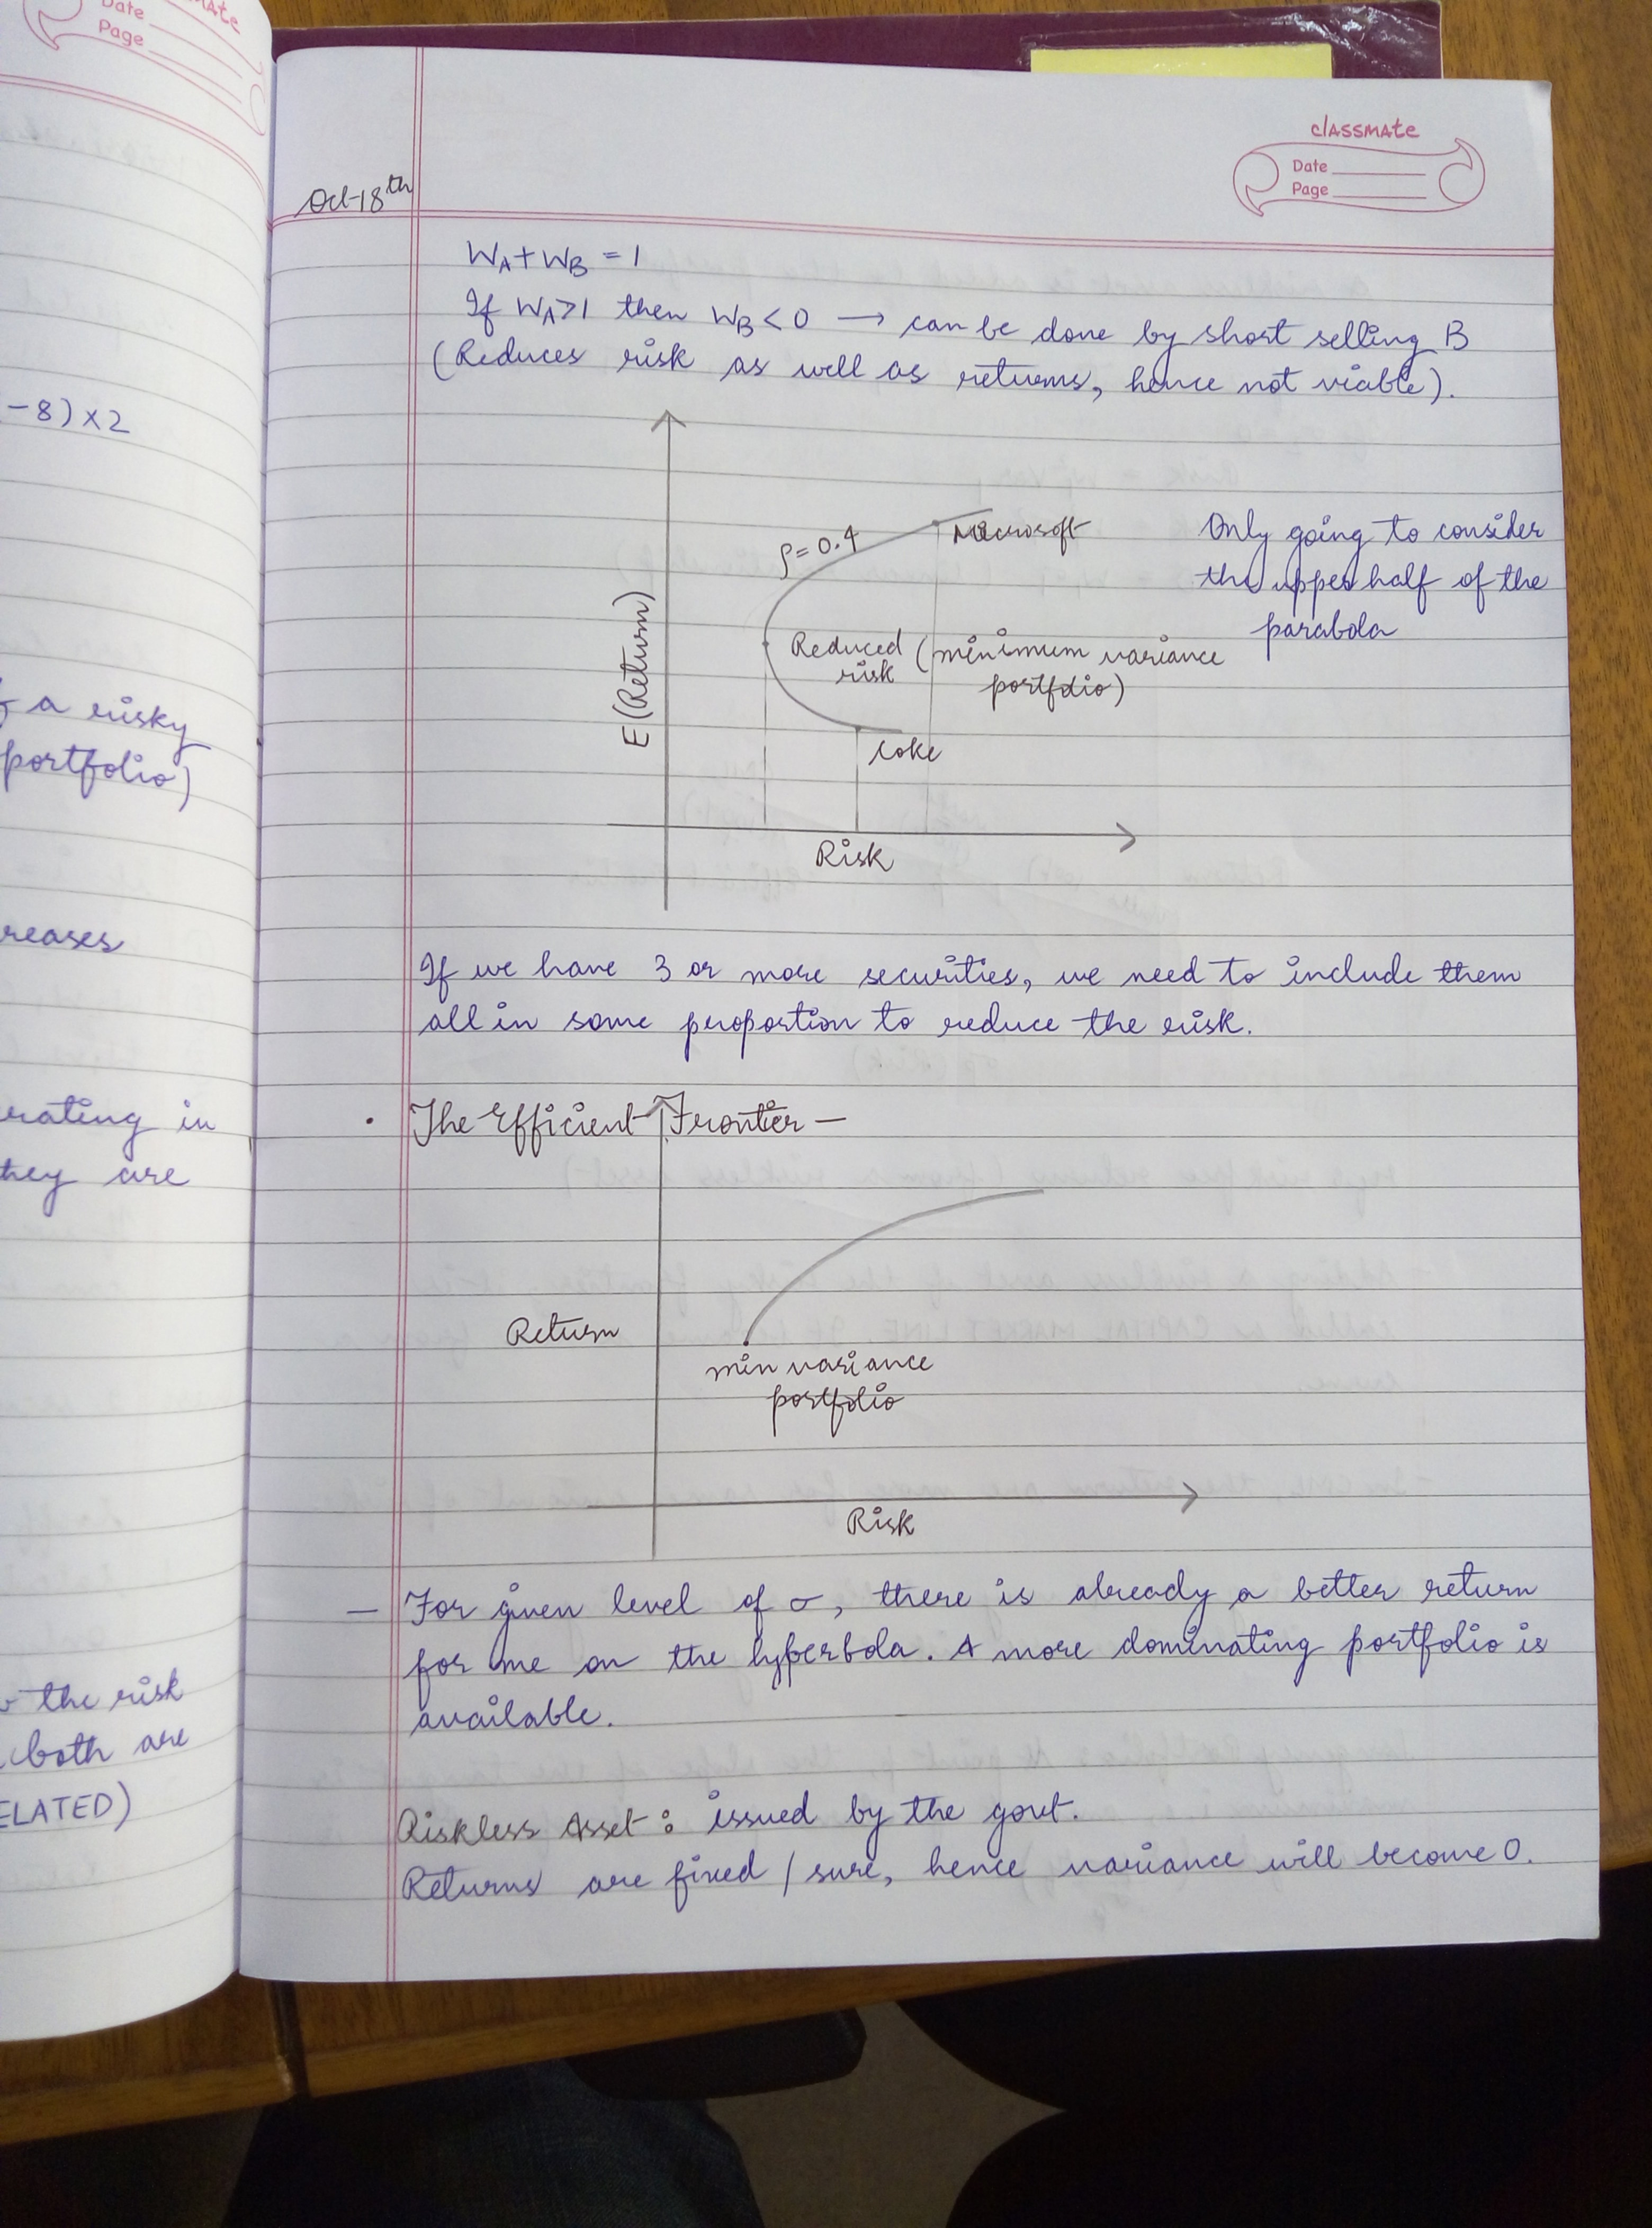 Date
Page
(-8) × 2
f a risky
portfolio)
reases
erating in
they are
the risk
both are
ELATED)
classmate
Date
Page
Oct-18th
WA + WB = 1
If WA > 1 then WB < 0 → can be done by short selling B
(Reduces risk as well as returns, hence not viable).
ρ = 0.4
Microsoft
Only going to consider
the upper half of the
parabola
E(Return)
Reduced risk (minimum variance
portfolio)
Coke
Risk
If we have 3 or more securities, we need to include them
all in some proportion to reduce the risk.
· The Efficient Frontier –
Return
min variance
portfolio
Risk
– For given level of σ, there is already a better return
for me on the hyperbola. A more dominating portfolio is
available.
Riskless Asset : issued by the govt.
Returns are fixed / sure, hence variance will become 0.